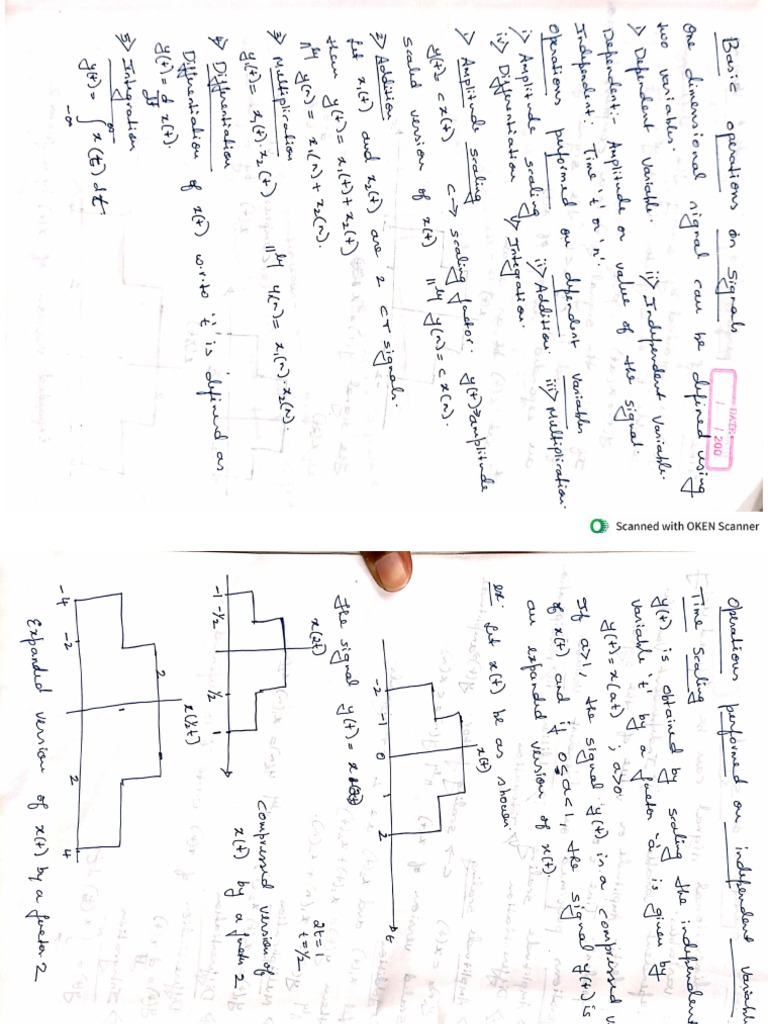 DATE
1 1200
Basic operations on signals
One dimensional signal can be defined using
two variables.
i> Dependent variable. ii> Independent variable.
Dependent: Amplitude or value of the signal.
Independent: Time 't' or 'n'.
Operations performed on dependent variables
i> Amplitude scaling ii> Addition iii> Multiplication.
iv> Differentiation v> Integration.
1> Amplitude scaling
y(t) = c x(t) c → scaling factor. y(t) → amplitude
scaled version of x(t) ||ly y(n) = c x(n).
2> Addition
Let x1(t) and x2(t) are 2 CT signals.
then y(t) = x1(t) + x2(t)
||ly y(n) = x1(n) + x2(n).
3> Multiplication
y(t) = x1(t). x2(t) ||ly y(n) = x1(n). x2(n).
4> Differentiation
Differentiation of x(t) w.r.to 't' is defined as
y(t) = d/dt x(t).
5> Integration
y(t) = ∫ x(t) dt
-∞ ∞
Scanned with OKEN Scanner
Operations performed on independent variabl
Time scaling
y(t) is obtained by scaling the independent
variable 't' by a factor 'a' is given by
y(t) = x(at) ; a>0
If a>1, the signal y(t) is a compressed v
of x(t) and if 0<a<1, the signal y(t) is
an expanded version of x(t).
ex: Let x(t) be as shown:
x(t)
-2 -1 0 1 2 t
The signal y(t) = x(2t)
2t=1
t=1/2
x(2t)
-1 -1/2 1/2 1
Compressed version of
x(t) by a factor 2
x(1/2t)
2
-4 -2 2 4
Expanded version of x(t) by a factor 2